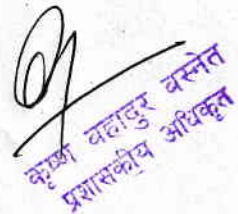 कृष्ण बहादुर बस्नेत
प्रशासकीय अधिकृत